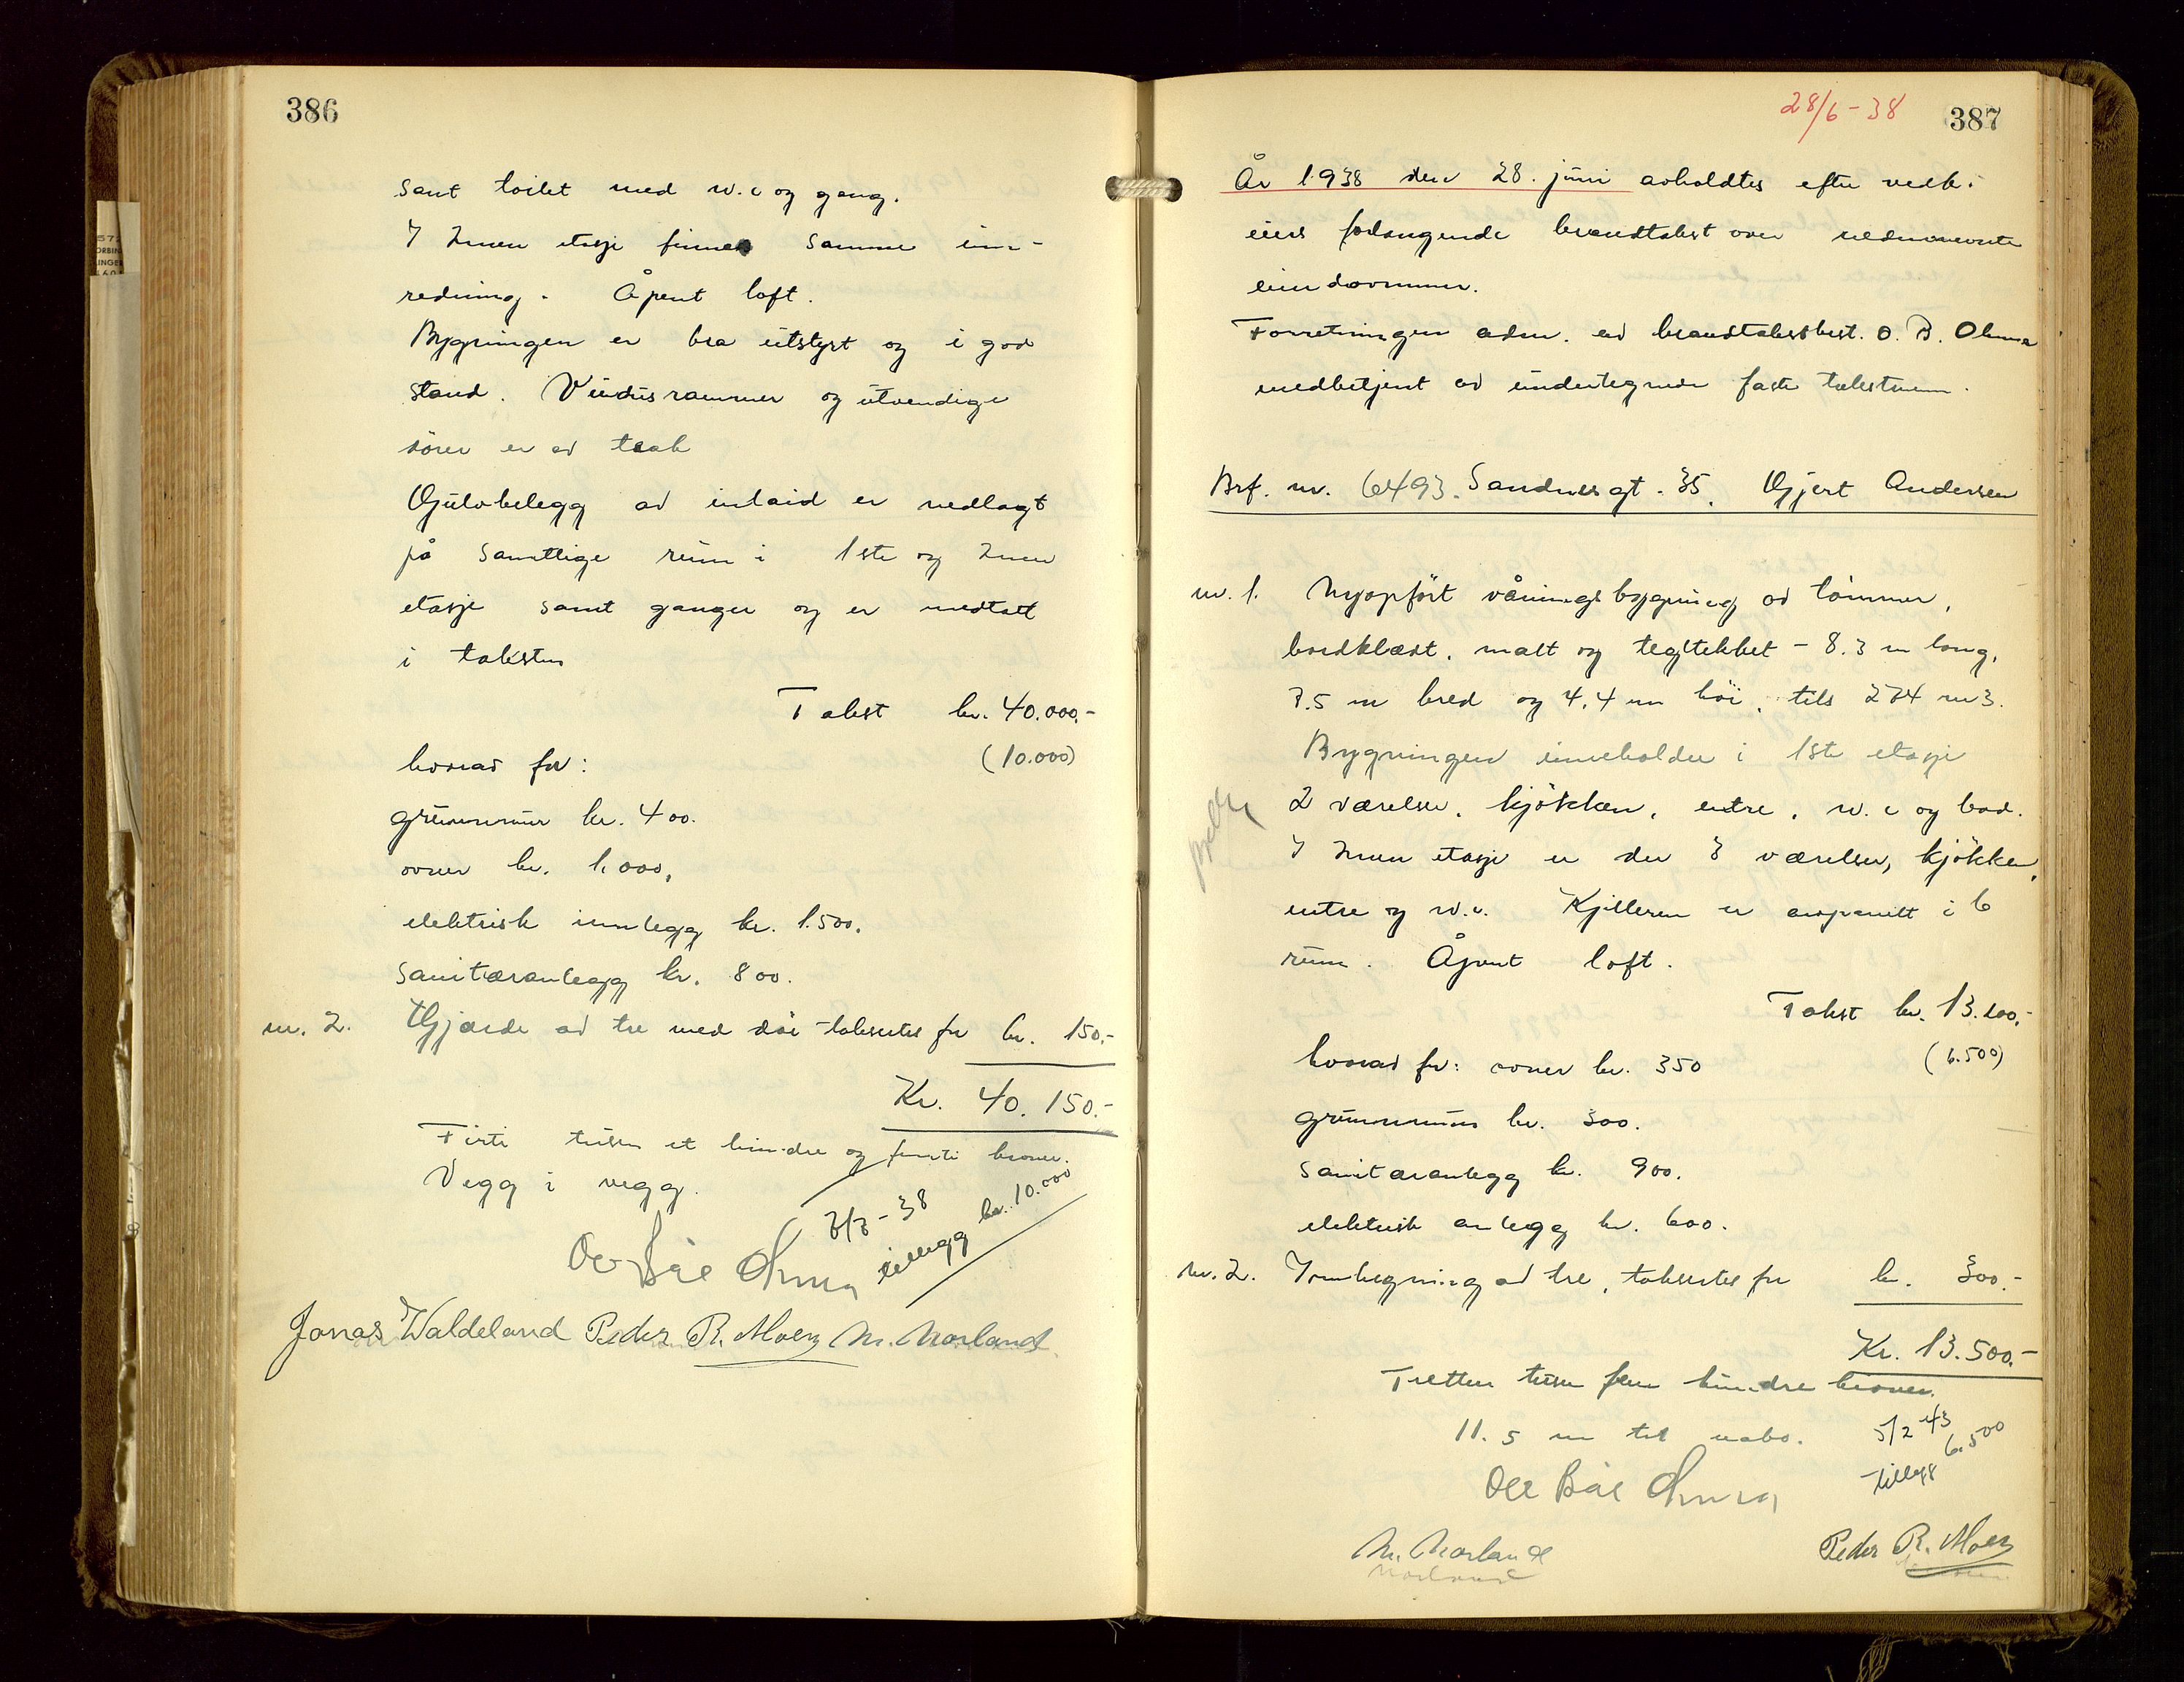 386
samt toilet med w.c og gang.
I 2nen etasje finnes samme inn-
redning. Åpent loft.
Bygningen er bra utstyrt og i god
stand. Vindusrammer og utvendige
dører er av teak
Gulvbelegg av inlaid er nedlagt
på samtlige rum i 1ste og 2nen
etasje samt ganger og er medtatt
i taksten
Takst kr. 40.000.-
hvorav for: (10.000)
grunnmur kr. 400.
ovner kr. 1.000,
elektrisk innlegg kr. 1.500.
sanitæranlegg kr. 800.
nr. 2. Gjærde av tre med dør taksertes for kr. 150.-
Kr. 40.150.-
Firti tusen et hundre og femti kroner.
Vegg i vegg.
3/3-38
tillegg kr. 10.000
Ole Bae Ohma
Jonas Waldeland Peder R. Moen M. Norland
28/6-38 387
År 1938 den 28. juni avholdtes efter vedk.
eiers forlangende brandtakst over nedennevnte
eiendommer.
Forretningen adm. av brandtakstbest. O. B. Ohma
medbetjent av undertegnede faste takstmenn.
Brf. nr. 6493. Sandnesgt. 35. Gjert Andersen
nr. 1. Nyopført våningsbygning av tømmer,
bordklædt, malt og tegltekket - 8.3 m lang,
7.5 m bred og 4.4 m høi, tils 274 m3.
Bygningen inneholder i 1ste etasje
2 værelser, kjøkken, entre, w.c og bad.
I 2nen etasje er der 3 værelser, kjøkken,
entre og w.c. Kjelleren er avpanelt i 6
rum. Åpent loft.
Takst kr. 13.200.-
hvorav for: ovner kr. 350 (6.500)
grunnmur kr. 300.
sanitæranlegg kr. 900.
elektrisk anlegg kr. 600.
nr. 2. Innhegning av tre, taksertes for kr. 300.-
Kr. 13.500.-
Tretten tusen fem hundre kroner.
11.5 m til nabo. 5/2 43
tillegg 6.500
Ole Bae Ohma
M. Norland Peder R. Moen